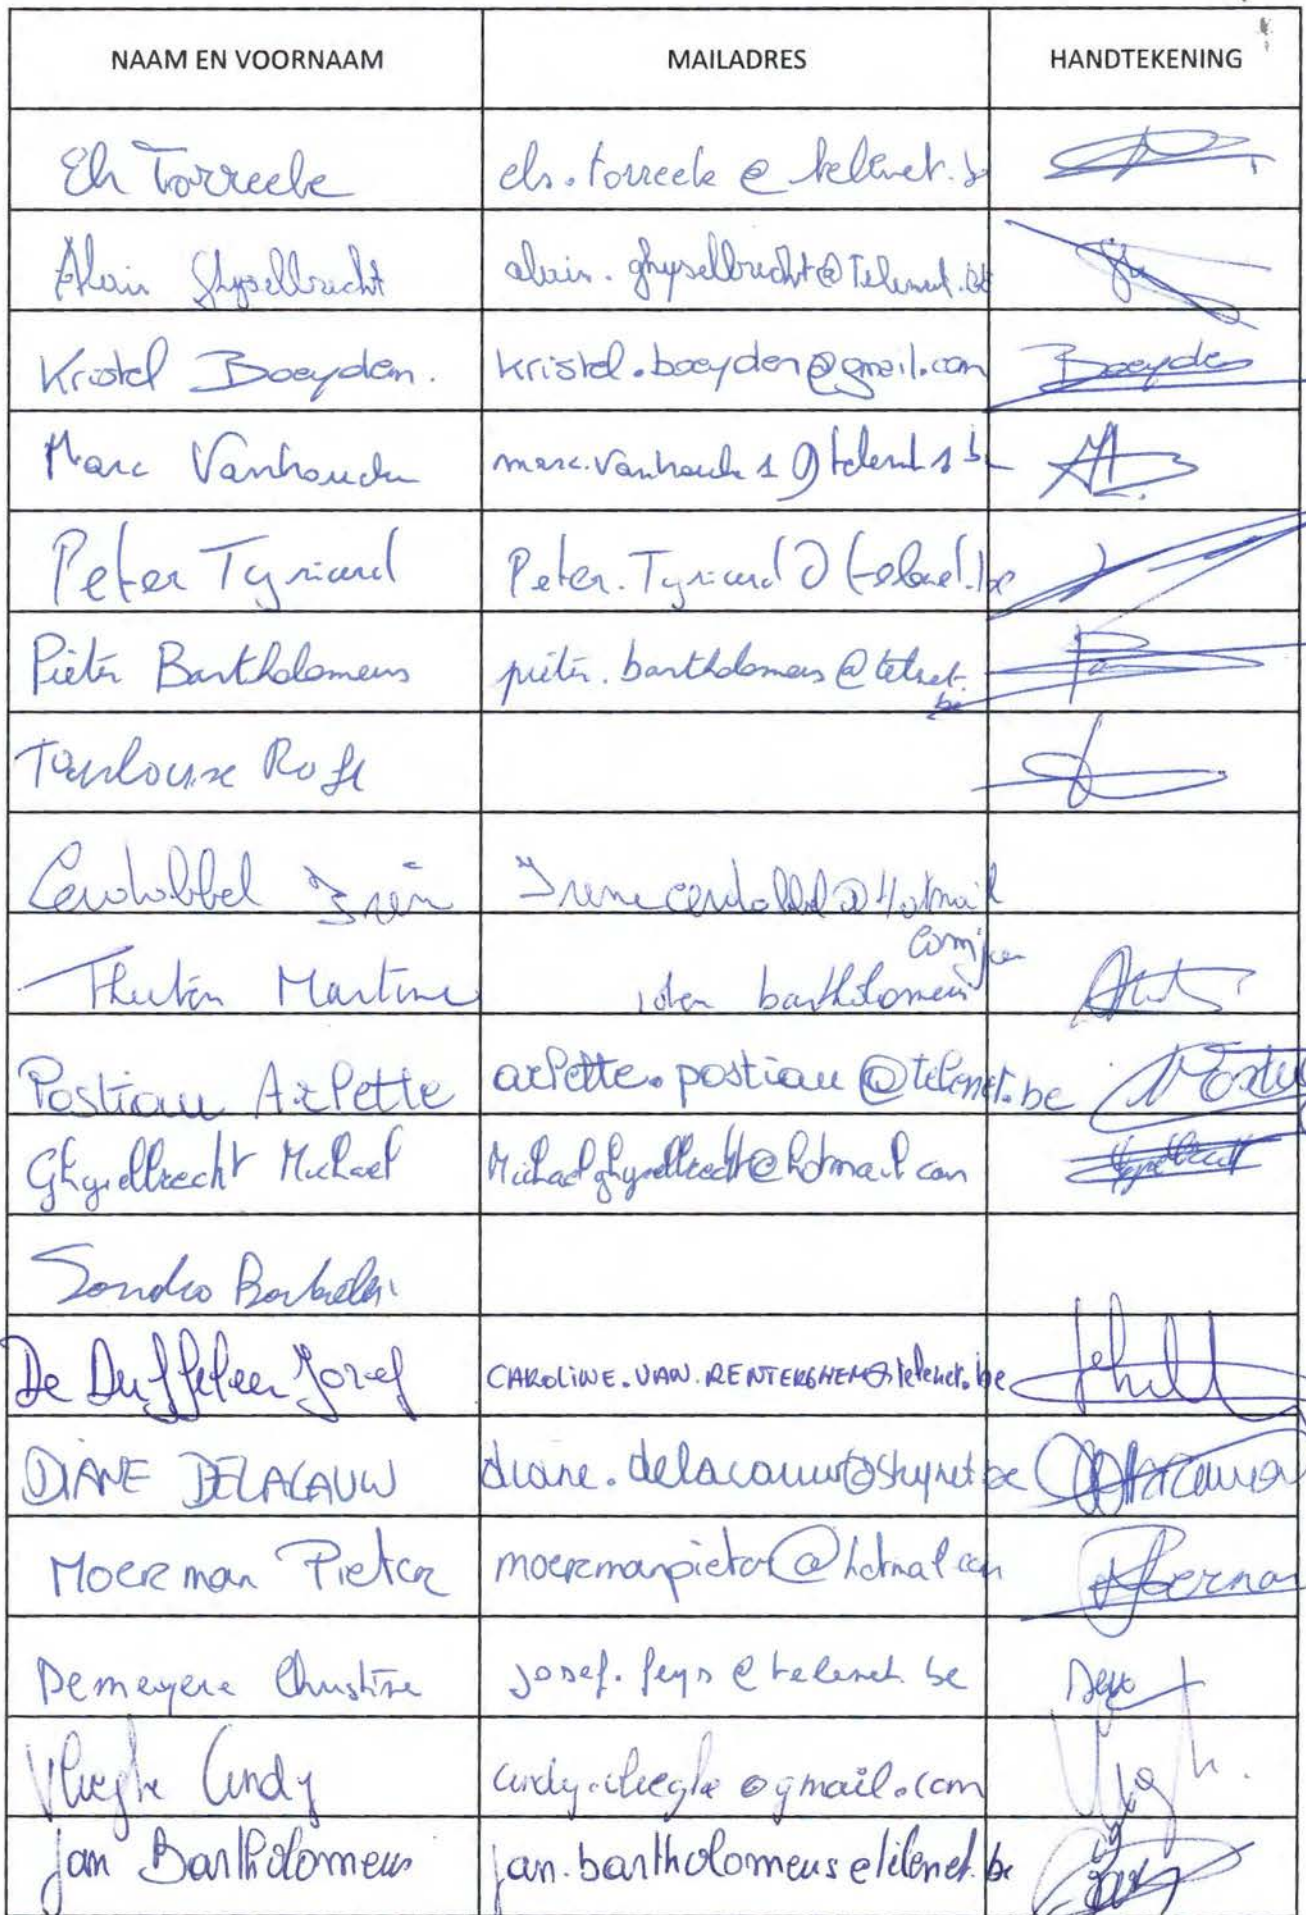 NAAM EN VOORNAAM MAILADRES HANDTEKENING
Els Torreele els.torreele@telenet.be
Alain Ghyselbrecht alain.ghyselbrecht@Telenet.be
Kristel Boeyden. kristel.boeyden@gmail.com Boeyden
Marc Vanhoucke
Peter Peter.
Pieter Bartholomeus pieter.bartholomeus@telenet.
be
Irene @Hotmail
com
Martine bartholomeus
Postiau Arlette arlette.postiau@telenet.be
Ghyselbrecht Michael Michaelghyselbrecht@hotmail com
Sandro
De Duffeleer Jozef CAROLINE.VAN.RENTERGHEM@telenet.be
DIANE DELACAUW diane.delacauw@skynet be
Moerman Pieter moermanpieter@hotmail com
Demeyere Christine josef.feys@telenet.be
Vlieghe Cindy cindy.vlieghe@gmail.com
Jan Bartholomeus jan.bartholomeus@telenet.be